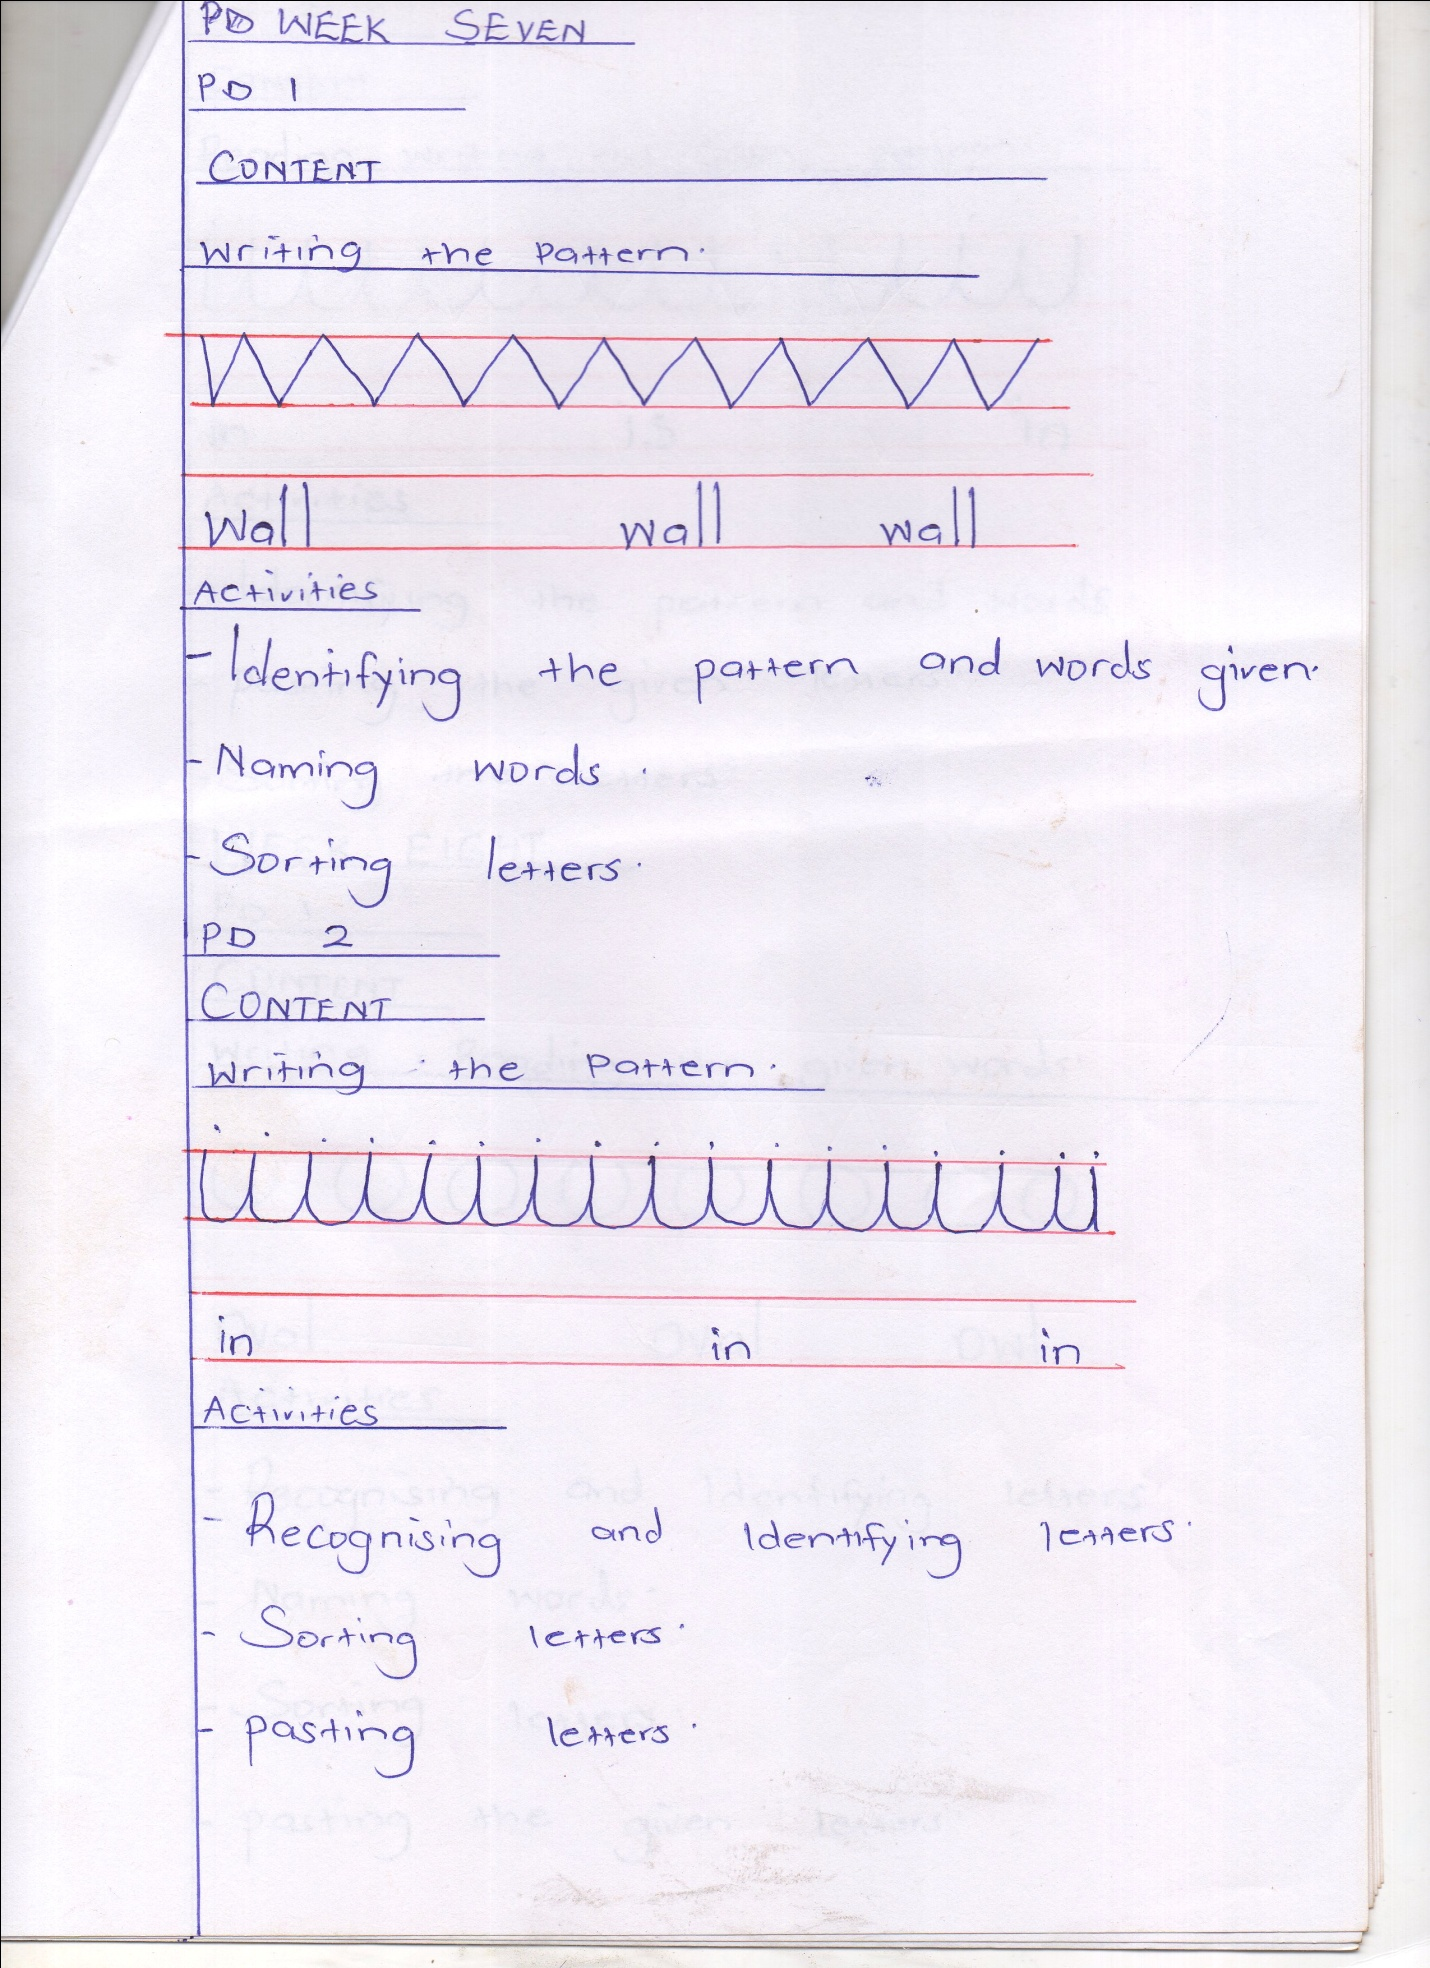 PD WEEK SEVEN
PD 1
CONTENT
Writing the Pattern.
Wall wall wall
Activities
- Identifying the pattern and words given.
- Naming words.
- Sorting letters.
PD 2
CONTENT
Writing the Pattern.
in in in
Activities
- Recognising and Identifying letters.
- Sorting letters.
- pasting letters.